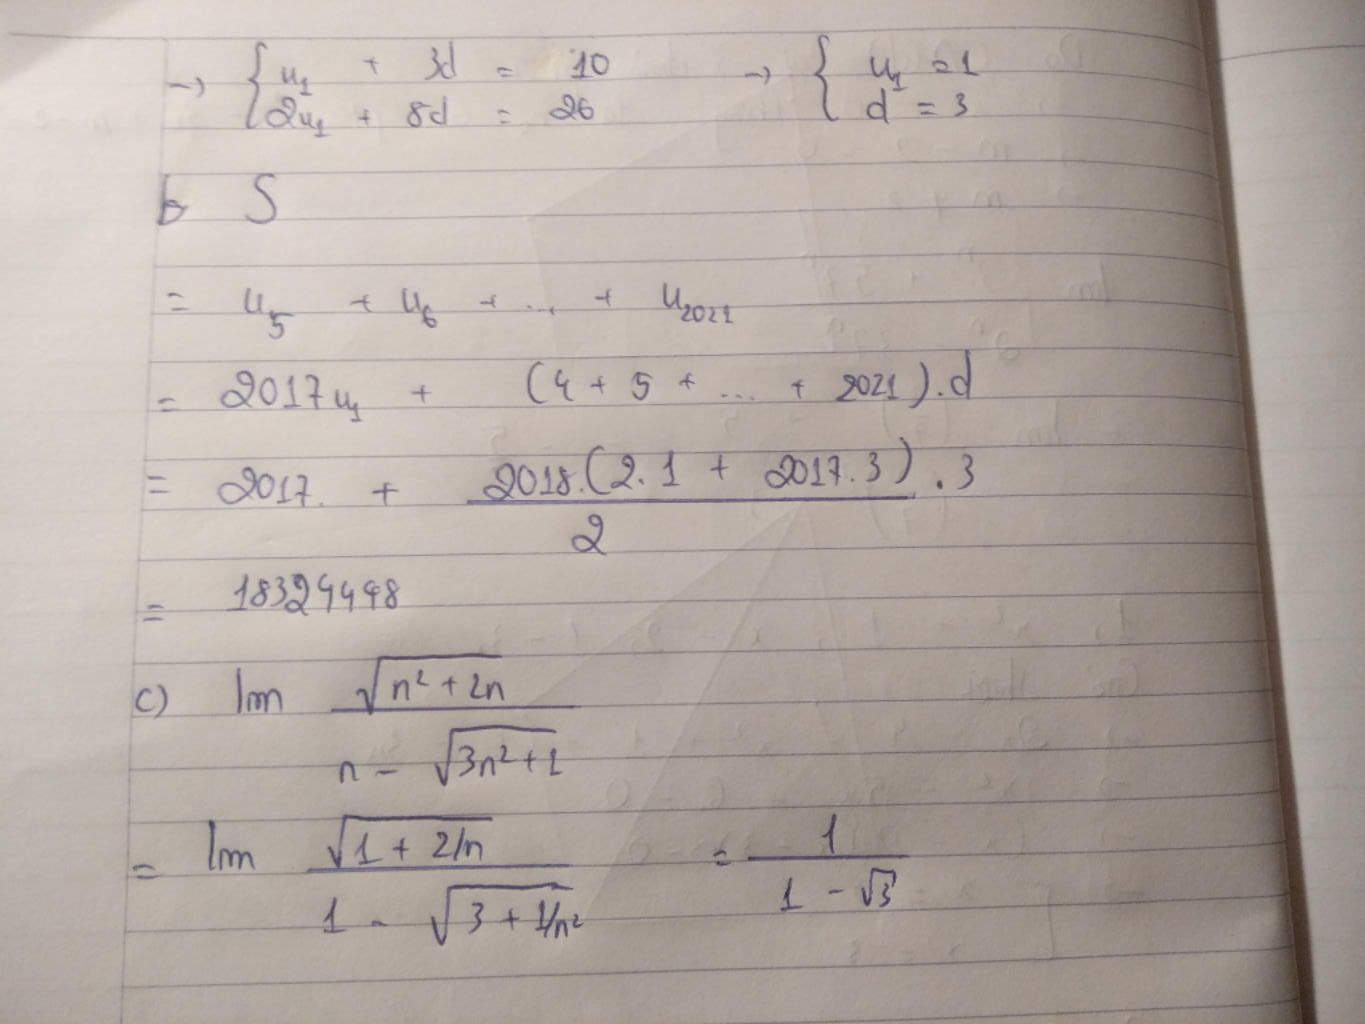 → { u₁ + 3d = 10 → { u₁ = 1
2u₁ + 8d = 26 d = 3
b S
= u₅ + u₆ + ... + u₂₀₂₁
= 2017u₁ + (4 + 5 + ... + 2021).d
= 2017. + 2018.(2.1 + 2017.3) . 3
2
= 18324498
c) lim √n² + 2n
n - √3n² + 1
= lim √1 + 2/n = 1
1 - √3 + 1/n² 1 - √3